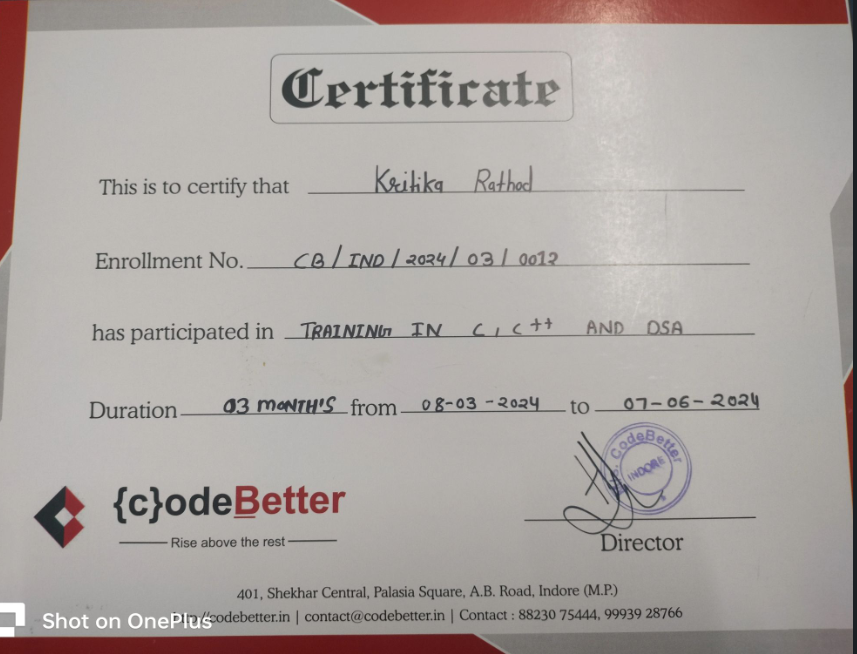 Certificate
This is to certify that Kritika Rathod
Enrollment No. CB/IND/2024/03/0012
has participated in TRAINING IN C, C++ AND DSA
Duration 03 MONTH'S from 08-03-2024 to 07-06-2024
CodeBetter
INDORE
{c}odeBetter
Rise above the rest
Director
401, Shekhar Central, Palasia Square, A.B. Road, Indore (M.P.)
codebetter.in | contact@codebetter.in | Contact : 88230 75444, 99939 28766
Shot on OnePlus